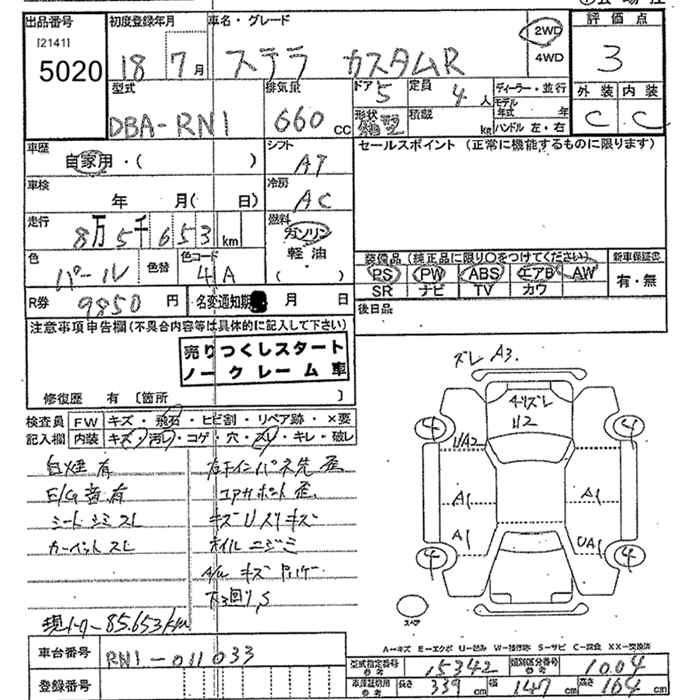 出品番号 初度登録年月 車名・グレード 評価点
[2141]
5020 18 7月 ステラ カスタムR 2WD 4WD 3
型式 排気量 ドア 5 定員 4人 ディーラー・並行 外装 内装
DBA-RN1 660cc 形状 積載 kg モデル年式 年 C C
ハンドル 左・右
車歴 シフト セールスポイント (正常に機能するものに限ります)
自家用・( ) AT
車検 冷房
年 月( 日) AC
走行 燃料
8万5千653km ガソリン
軽油
( )
色 色替 色コード 装備品(純正品に限り○をつけてください) 新車保証書
パール 4A PS PW ABS エアB AW 有・無
SR ナビ TV カワ
R券 9850円 名変通知期 月 日 後日品
注意事項申告欄(不具合内容等は具体的に記入して下さい)
売りつくしスタート
ノークレーム車
修復歴 有 [箇所 ]
ズレ A3.
検査員 FW キズ・飛石・ヒビ割・リペア跡・×要
記入欄 内装 キズ・汚レ・コゲ・穴・スレ・キレ・破レ
4 4
U2
UA2
A1 A1
A1 UA1
4 4
スペア
自煙 有
E/G音 有
シート シミ スレ
カーペット スレ
コアサポート 歪
キズ U スリキズ
オイル ニジミ
下回り S
現メーター 85.653km
A−キズ E−エクボ U−凹み W−補修跡 S−サビ C−腐食 XX−交換済
車台番号 RN1-011033 型式指定番号 参考 15342 類別区分番号 参考 1004
登録番号 車庫証明用 参考 長さ 339cm 幅 147cm 高さ 164cm